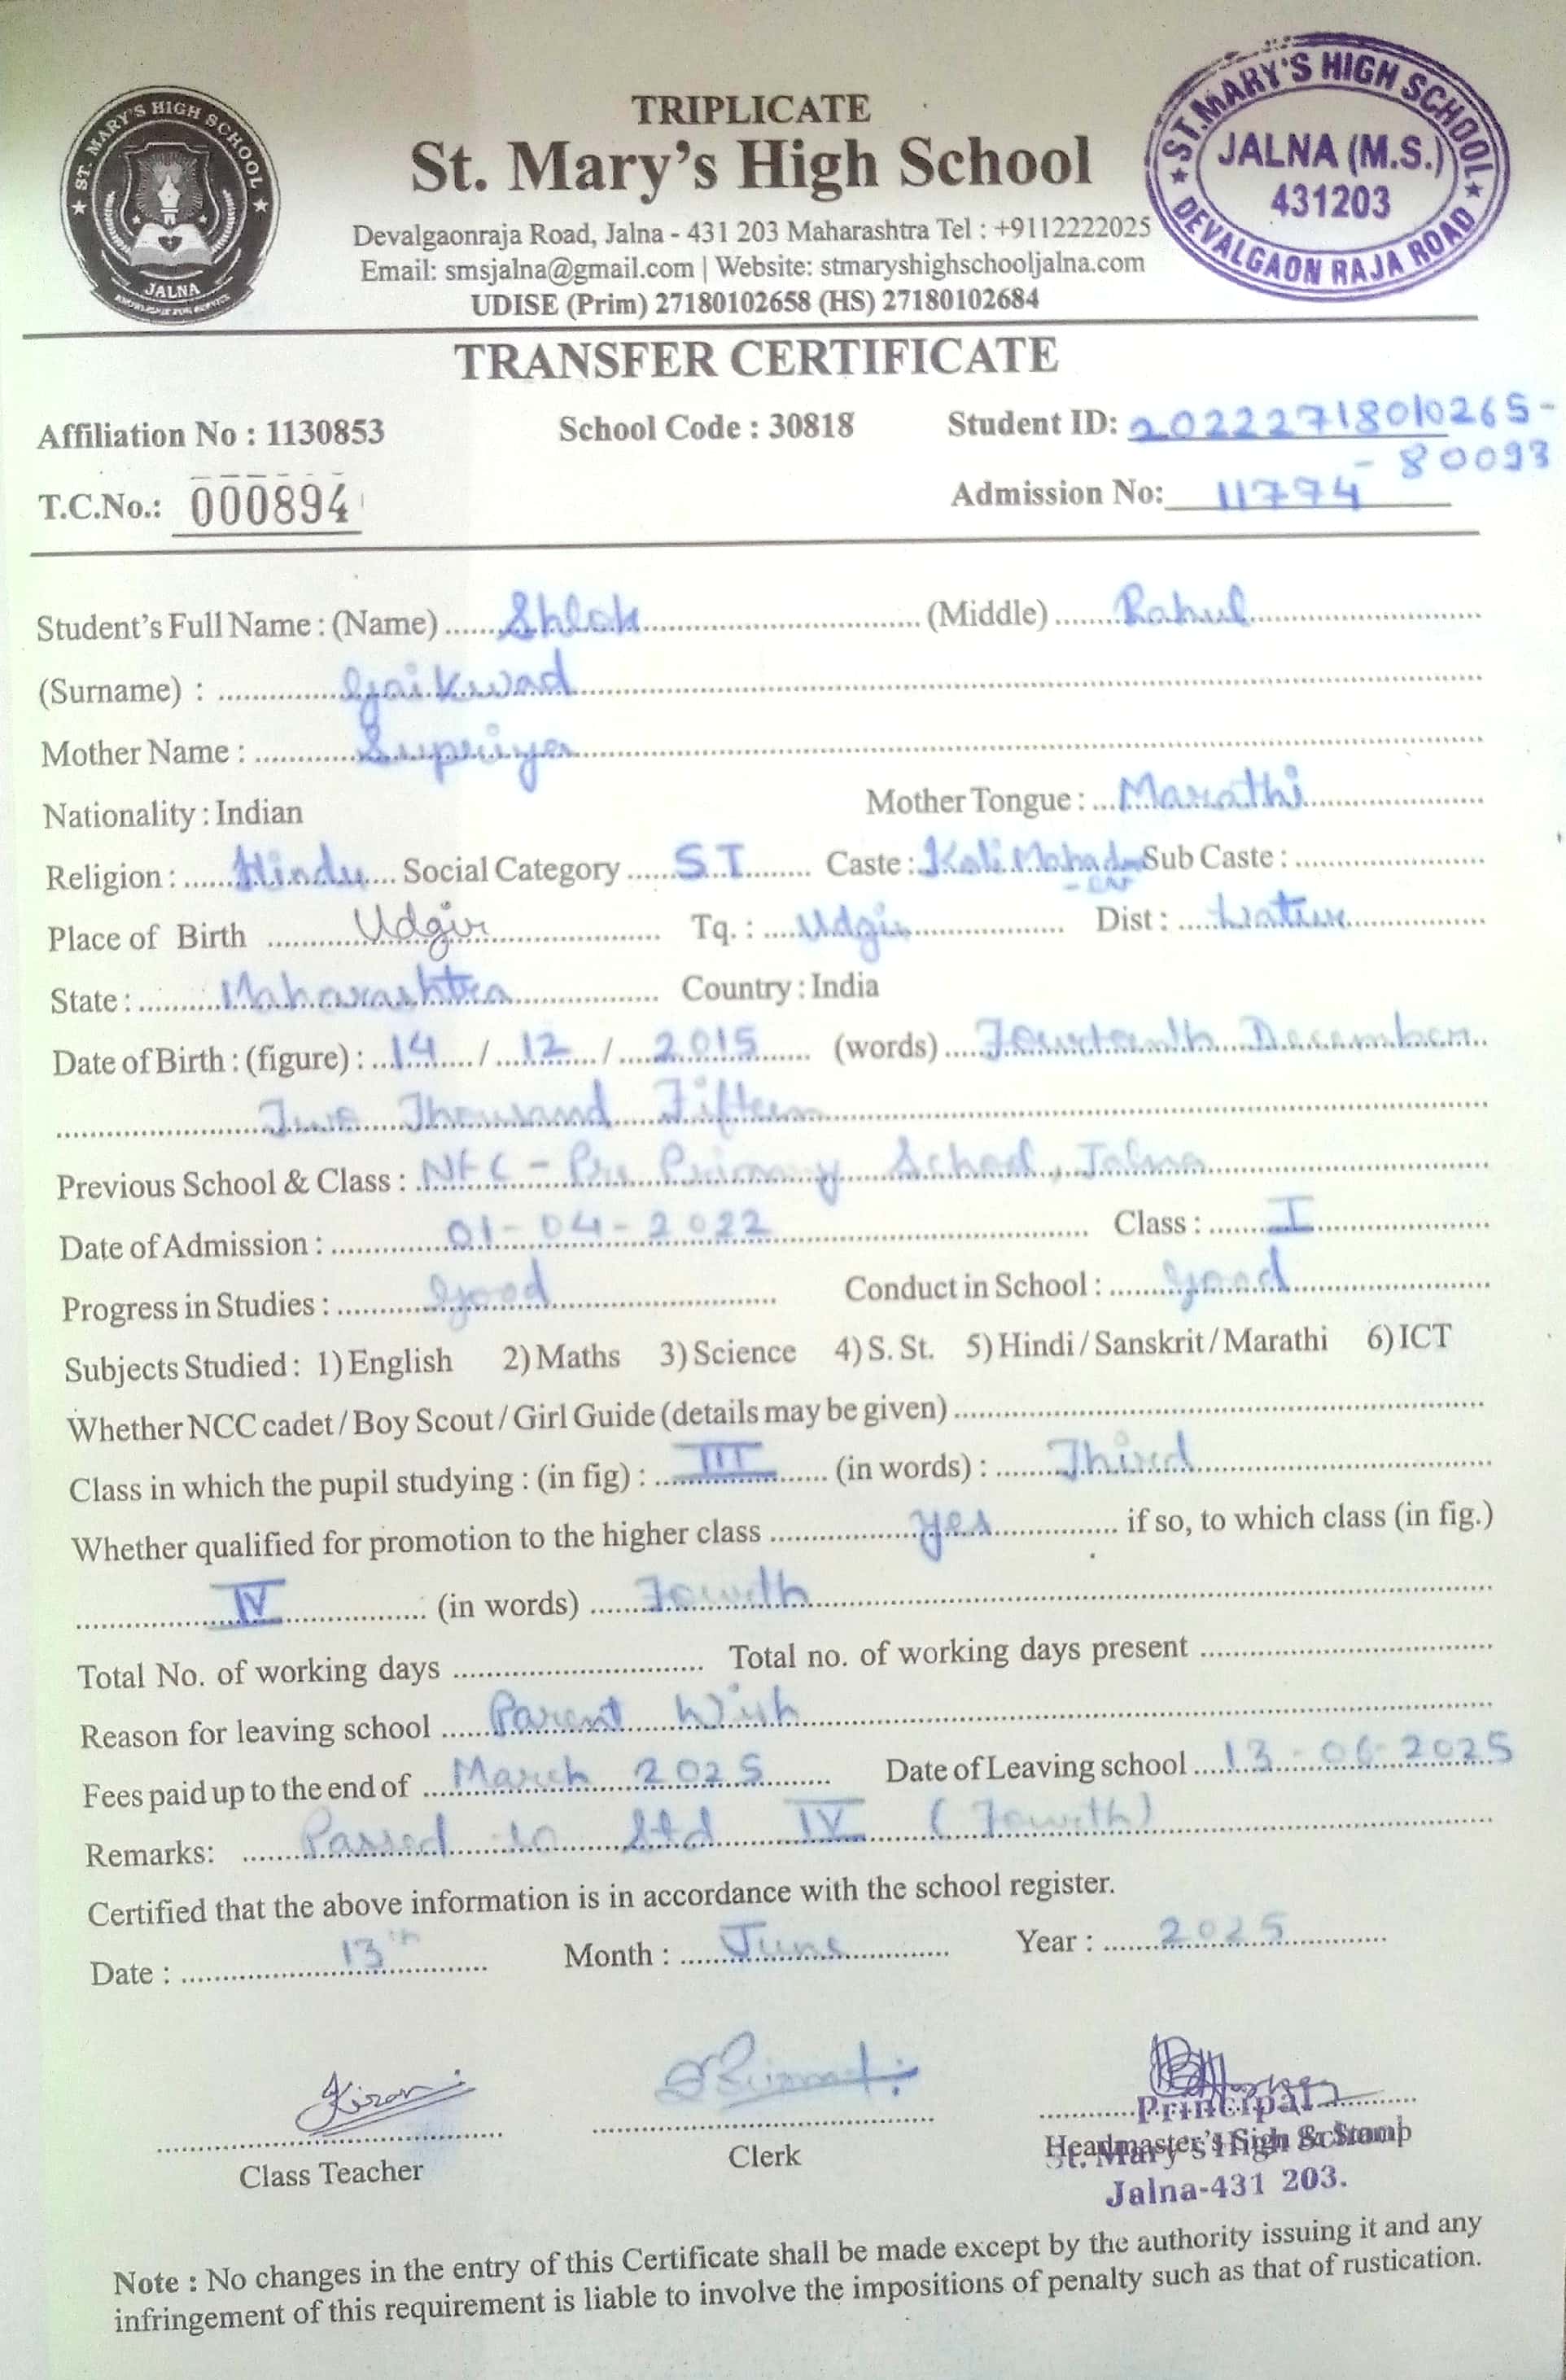 TRIPLICATE
St. Mary's High School
Devalgaonraja Road, Jalna - 431 203 Maharashtra Tel : +9112222025
Email: smsjalna@gmail.com | Website: stmaryshighschooljalna.com
UDISE (Prim) 27180102658 (HS) 27180102684
ST. MARY'S HIGH SCHOOL
JALNA
ST.MARY'S HIGH SCHOOL
JALNA (M.S.)
431203
DEVALGAON RAJA ROAD
TRANSFER CERTIFICATE
Affiliation No : 1130853 School Code : 30818 Student ID: 20222718010265-
-80093
T.C.No.: 000894 Admission No: 11794
Student's Full Name : (Name) Shlok (Middle) Rahul
(Surname) : Gaikwad
Mother Name : Supriya
Nationality : Indian Mother Tongue : Marathi
Religion : Hindu Social Category S.T Caste : Sub Caste :
Place of Birth Udgir Tq. : Udgir Dist : Latur
State : Maharashtra Country : India
Date of Birth : (figure) : 14 / 12 / 2015 (words) Fourteenth December
Two Thousand Fifteen
Previous School & Class : NFC - Pre Primary School, Jalna
Date of Admission : 01-04-2022 Class : I
Progress in Studies : Good Conduct in School : Good
Subjects Studied : 1) English 2) Maths 3) Science 4) S. St. 5) Hindi / Sanskrit / Marathi 6) ICT
Whether NCC cadet / Boy Scout / Girl Guide (details may be given)
Class in which the pupil studying : (in fig) : III (in words) : Third
Whether qualified for promotion to the higher class yes if so, to which class (in fig.)
IV (in words) Fourth
Total No. of working days Total no. of working days present
Reason for leaving school Parent Wish
Fees paid up to the end of March 2025 Date of Leaving school 13-06-2025
Remarks: Passed to Std IV (Fourth)
Certified that the above information is in accordance with the school register.
Date : 13th Month : June Year : 2025
Kiran
Class Teacher Clerk Headmaster's Sign & Stamp
Principal
St. Mary's High School
Jalna-431 203.
Note : No changes in the entry of this Certificate shall be made except by the authority issuing it and any
infringement of this requirement is liable to involve the impositions of penalty such as that of rustication.